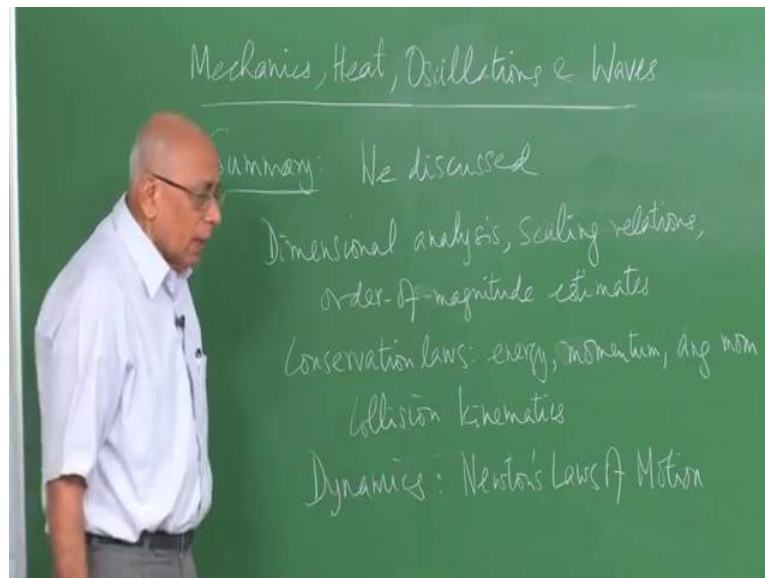 Mechanics, Heat, Oscillations & Waves
Summary: We discussed
Dimensional analysis, Scaling relations,
order-of-magnitude estimates
Conservation laws: energy, momentum, ang mom
Collision kinematics
Dynamics: Newton's Laws of Motion